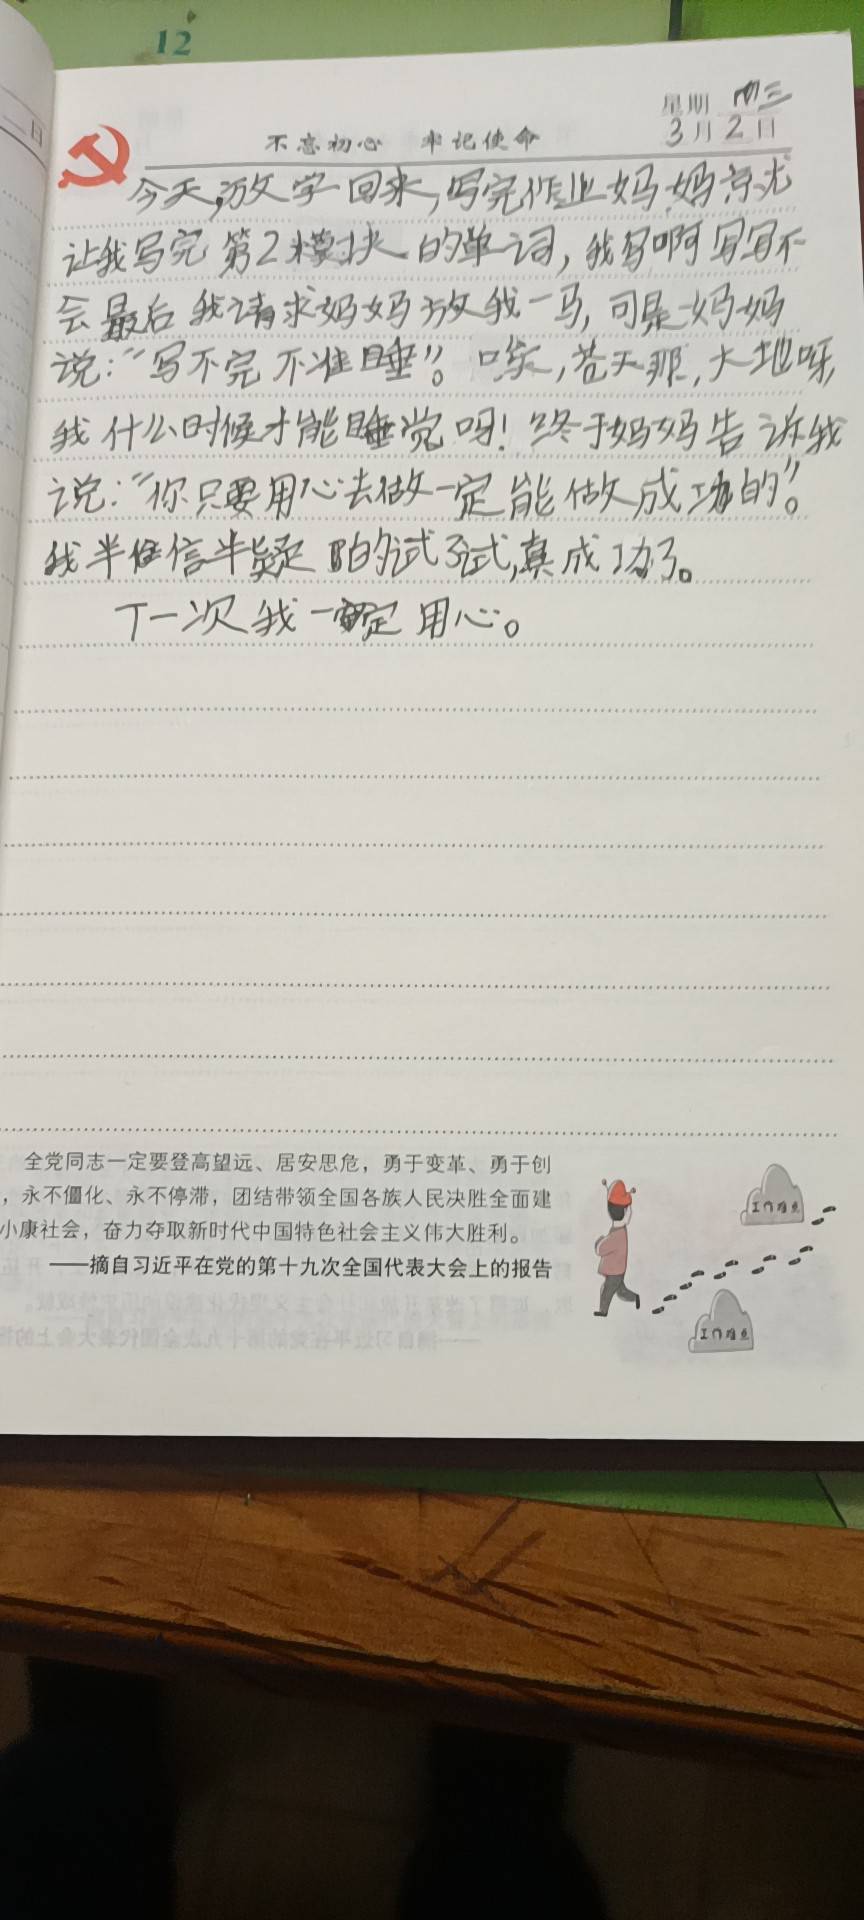 12
星期 三
不忘初心 牢记使命
3月2日
今天,放学回来,写完作业妈妈就
让我写完第2模块的单词,我写啊写写不
会最后我请求妈妈放我一马,可是妈妈
说:“写不完不准睡”。唉,苍天那,大地呀,
我什么时候才能睡觉呀!终于妈妈告诉我
说:“你只要用心去做一定能做成功的”。
我半信半疑的试了试,真成功了。
下一次我一定用心。
全党同志一定要登高望远、居安思危,勇于变革、勇于创
,永不僵化、永不停滞,团结带领全国各族人民决胜全面建
小康社会,奋力夺取新时代中国特色社会主义伟大胜利。
——摘自习近平在党的第十九次全国代表大会上的报告
工作难点
工作难点